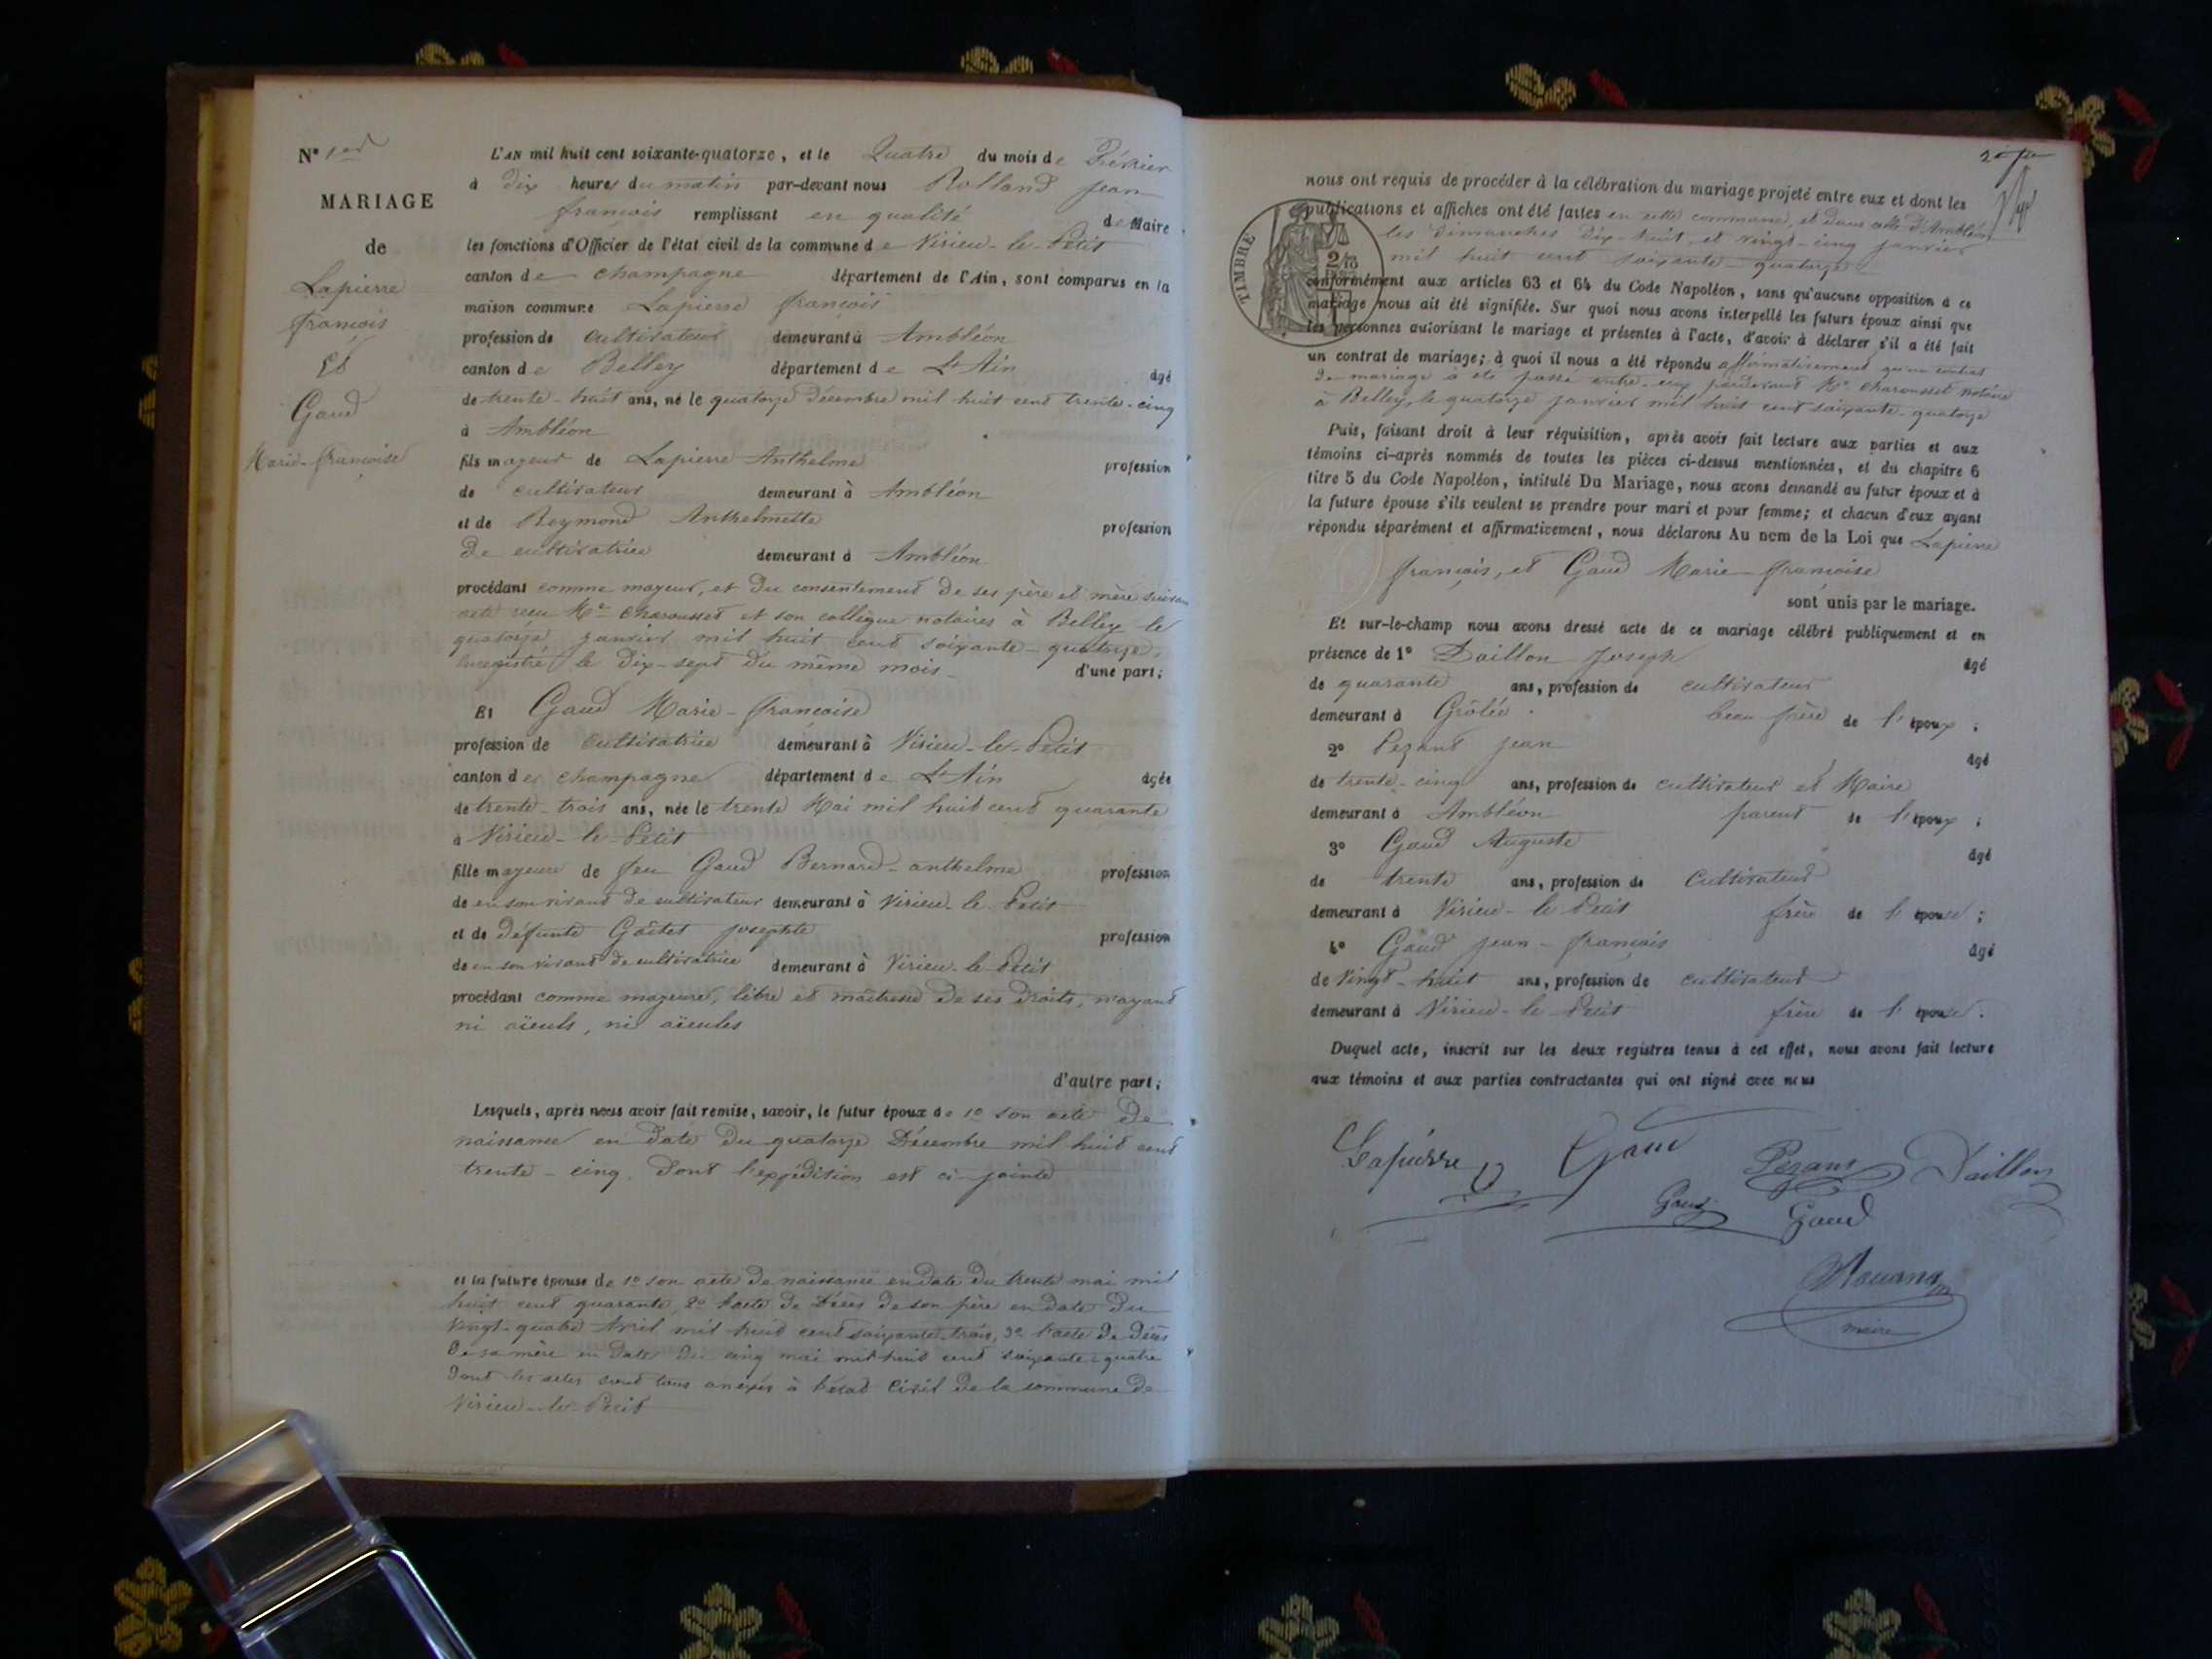 N° 1er
MARIAGE
de
Lapierre
françois
Et
Gaud
Marie-françoise
L'AN mil huit cent soixante-quatorze, et le Quatre du mois de Février
à dix heures du matin par-devant nous Rolland jean
françois remplissant en qualité de Maire
les fonctions d'Officier de l'état civil de la commune de Virieu-le-Petit
canton de champagne département de l'Ain, sont comparus en la
maison commune Lapierre françois
profession de cultivateur demeurant à Ambléon
canton de Belley département de L'Ain âgé
de trente-huit ans, né le quatorze décembre mil huit cent trente-cinq
à Ambléon
fils mageur de Lapierre Anthelme profession
de cultivateur demeurant à Ambléon
et de Reymond Anthelmette profession
de cultivatrice demeurant à Ambléon
procédant comme mageur, et du consentement de ses père et mère suivant
acte reçu Me Charousset et son collègue notaires à Belley le
quatorze janvier mil huit cent soixante-quatorze,
enregistré le dix-sept du même mois d'une part;
Et Gaud Marie-françoise
profession de cultivatrice demeurant à Virieu-le-Petit
canton de champagne département de L'Ain âgée
de trente-trois ans, née le trente Mai mil huit cent quarante
à Virieu-le-Petit
fille mageure de feu Gaud Bernard-anthelme profession
de en son vivant de cultivateur demeurant à Virieu-le-Petit
et de défunte Gâitet josephte profession
de en son vivant de cultivatrice demeurant à Virieu-le-Petit
procédant comme mageure, libre et maîtresse de ses droits, n'ayant
ni aïeuls, ni aïeules
d'autre part;
Lesquels, après nous avoir fait remise, savoir, le futur époux de 1° son acte de
naissance en date du quatorze Décembre mil huit cent
trente-cinq. dont l'expédition est ci-jointe
et la future épouse de 1° son acte de naissance en date du trente mai mil
huit cent quarante, 2° l'acte de Décès de son père en date du
vingt-quatre Avril mil huit cent soixante-trois, 3° l'acte de décès
de sa mère en date du cinq mai mil huit cent soixante-quatre
dont les actes sont tous anexés à l'état civil de la commune de
Virieu-le-Petit
2e
nous ont requis de procéder à la célébration du mariage projeté entre eux et dont les
publications et affiches ont été faites en cette commune, et dans celle d'Ambléon
les dimanches dix-huit et vingt-cinq janvier
mil huit cent soixante-quatorze
TIMBRE
conformément aux articles 63 et 64 du Code Napoléon, sans qu'aucune opposition à ce
mariage nous ait été signifiée. Sur quoi nous avons interpellé les futurs époux ainsi que
les personnes autorisant le mariage et présentes à l'acte, d'avoir à déclarer s'il a été fait
un contrat de mariage; à quoi il nous a été répondu affirmativement qu'un contrat
de mariage a été passé entre eux pardevant Me Charousset notaire
à Belley, le quatorze janvier mil huit cent soixante-quatorze
Puis, faisant droit à leur réquisition, après avoir fait lecture aux parties et aux
témoins ci-après nommés de toutes les pièces ci-dessus mentionnées, et du chapitre 6
titre 5 du Code Napoléon, intitulé Du Mariage, nous avons demandé au futur époux et à
la future épouse s'ils veulent se prendre pour mari et pour femme; et chacun d'eux ayant
répondu séparément et affirmativement, nous déclarons Au nom de la Loi que Lapierre
françois, et Gaud Marie-françoise
sont unis par le mariage.
Et sur-le-champ nous avons dressé acte de ce mariage célébré publiquement et en
présence de 1° Daillon Joseph âgé
de quarante ans, profession de cultivateur
demeurant à Grôlée beau frère de l'époux;
2° Pezant jean âgé
de trente-cinq ans, profession de cultivateur et Maire
demeurant à Ambléon parent de l'époux;
3° Gaud Auguste âgé
de trente ans, profession de Cultivateur
demeurant à Virieu-le-Petit frère de l'épouse;
4° Gaud jean-françois âgé
de vingt-huit ans, profession de cultivateur
demeurant à Virieu-le-Petit frère de l'épouse.
Duquel acte, inscrit sur les deux registres tenus à cet effet, nous avons fait lecture
aux témoins et aux parties contractantes qui ont signé avec nous
Lapierre Gaud Pezant Daillon
Gaud Gaud
maire